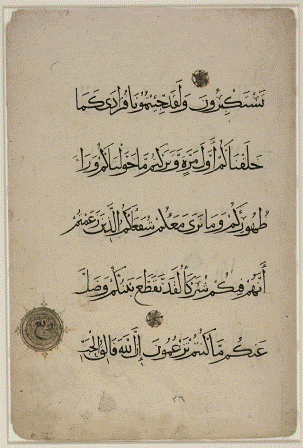 تستكبرون ولقد جئتمونا فرادى كما
خلقناكم أول مرة وتركتم ما خولناكم ورا
ظهوركم وما نرى معكم شفعاكم الذين زعمتم
أنهم فيكم شركأ لقد تقطع بينكم وضل
عنكم ما كنتم تزعمون إن الله فالق الحب